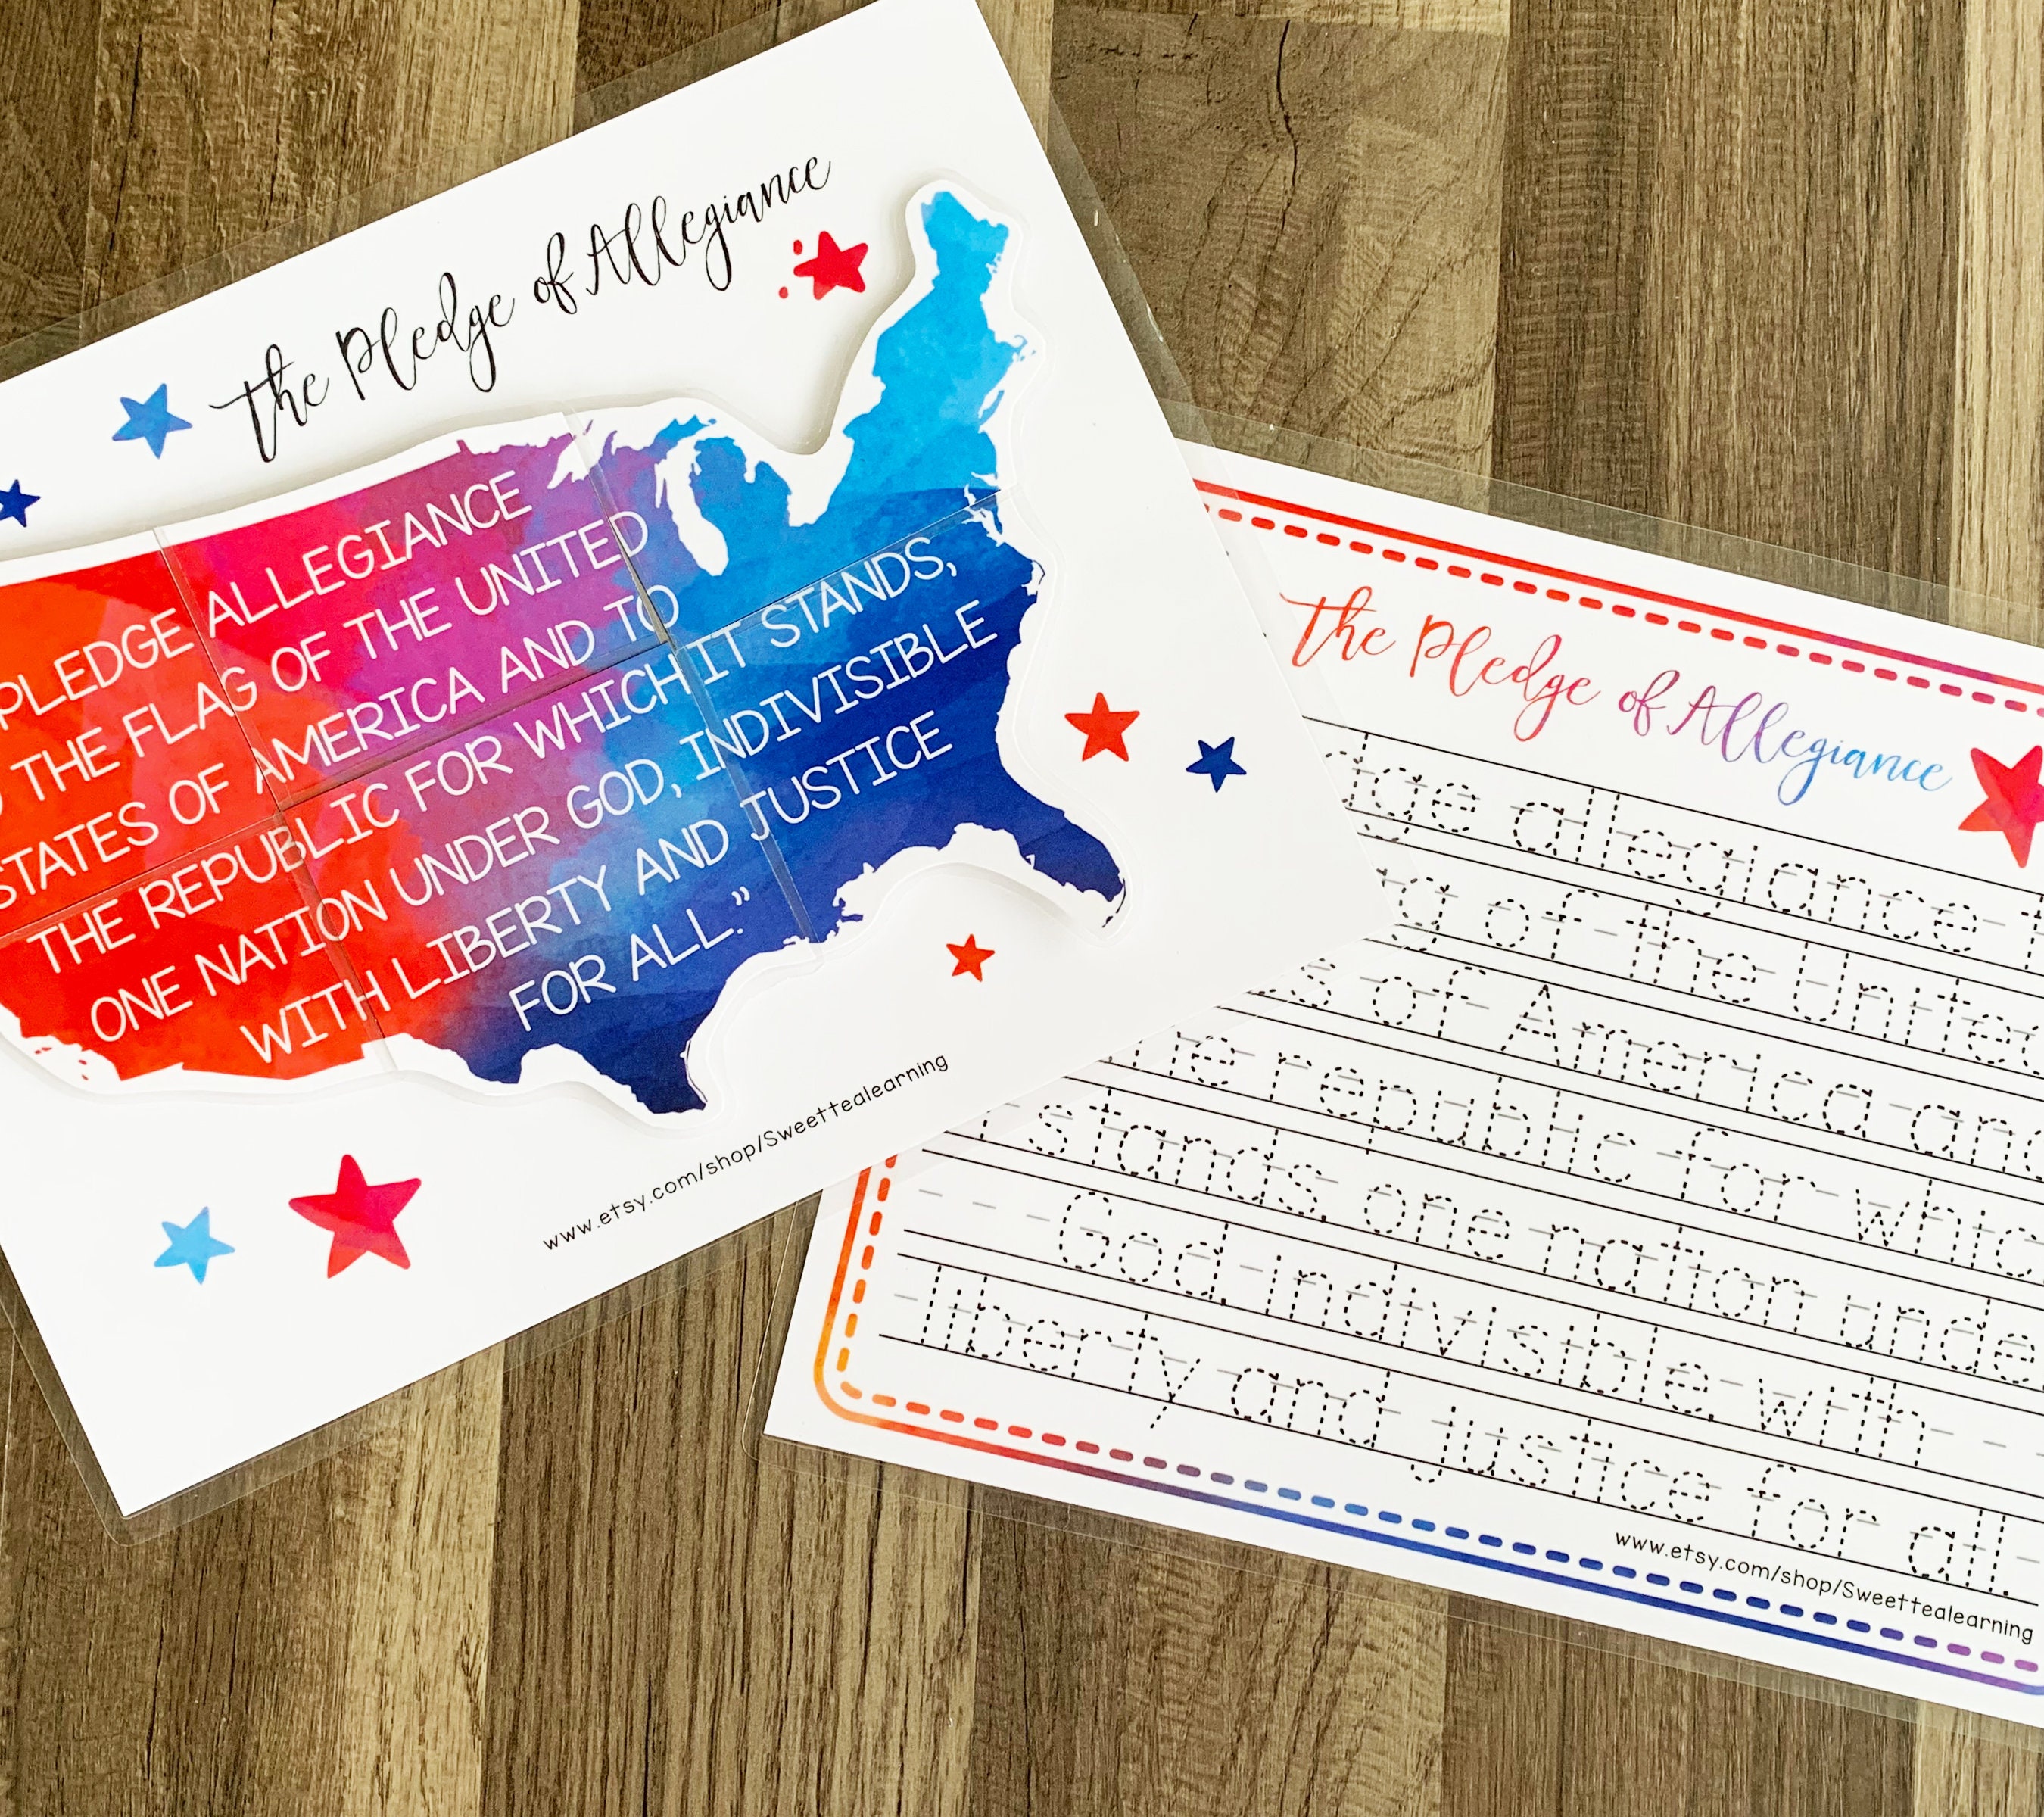 the Pledge of Allegiance
PLEDGE ALLEGIANCE
THE FLAG OF THE UNITED
STATES OF AMERICA AND TO
THE REPUBLIC FOR WHICH IT STANDS,
ONE NATION UNDER GOD, INDIVISIBLE
WITH LIBERTY AND JUSTICE
FOR ALL."
www.etsy.com/shop/Sweettealearning
the Pledge of Allegiance
allegiance
of the United
of America and
republic for
stands, one nation
God, indivisible, with
liberty and justice for all.
www.etsy.com/shop/Sweettealearning